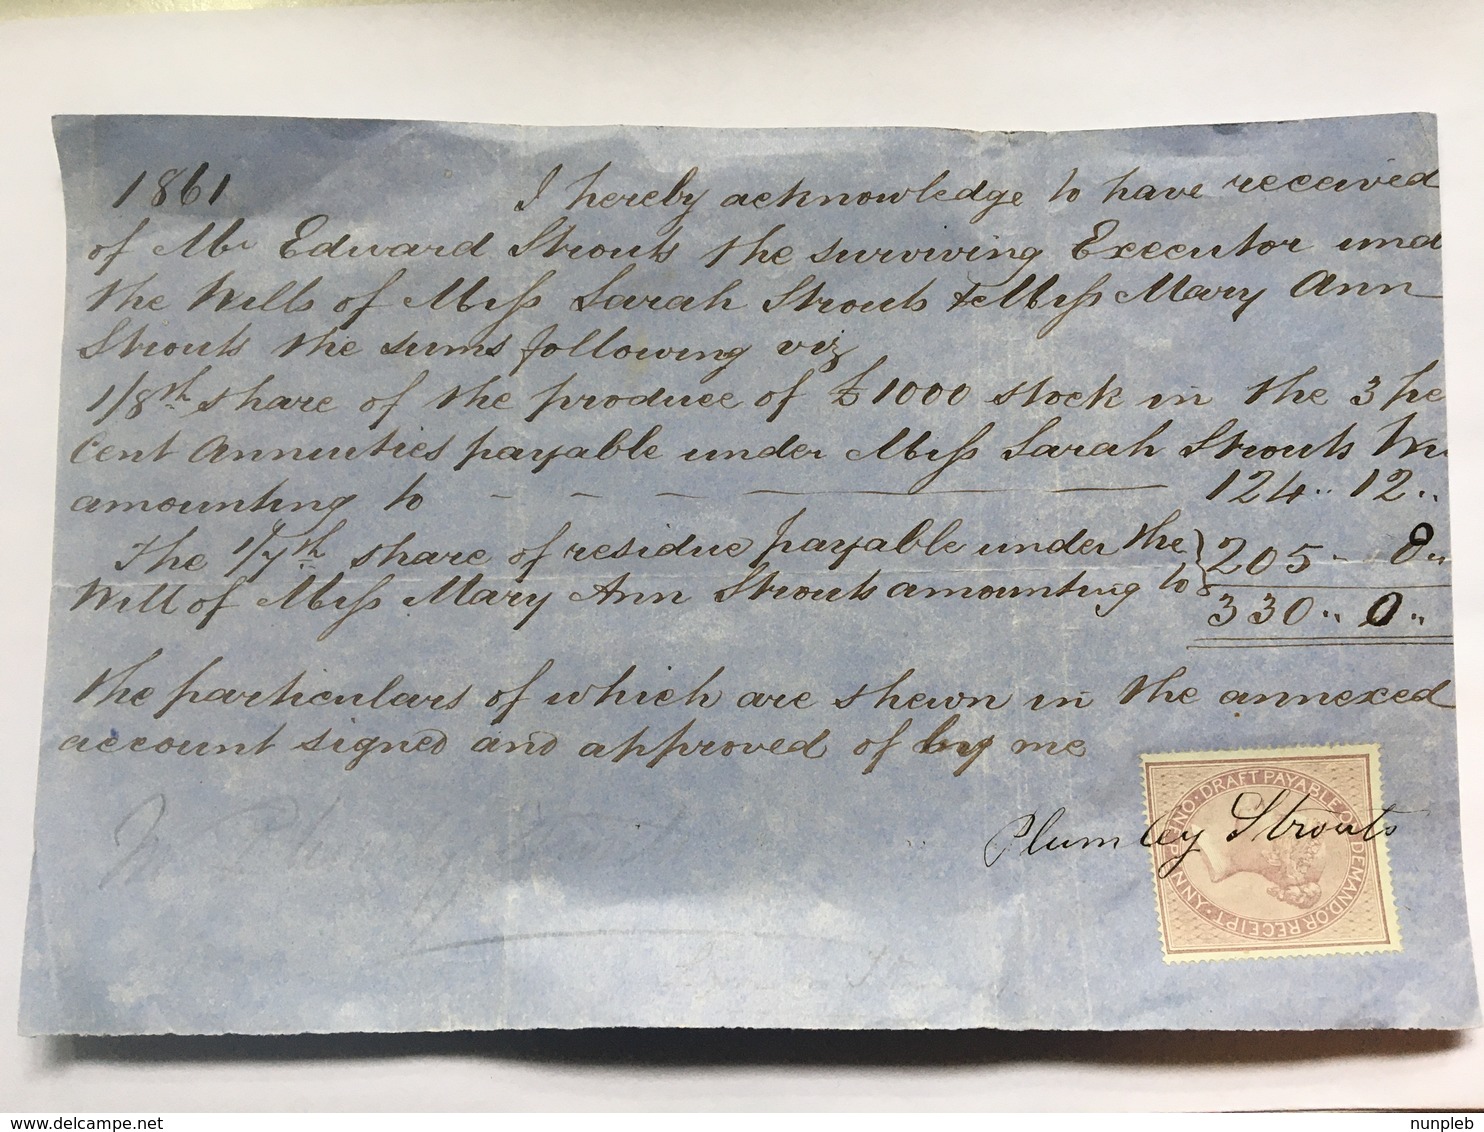 1861 I hereby acknowledge to have received
of Mr Edward Strouts the surviving Executor und
the Wills of Miss Sarah Strouts & Miss Mary Ann
Strouts the sums following viz
1/8th share of the produce of £1000 stock in the 3 pe
Cent Annuities payable under Miss Sarah Strouts Wi
amounting to - - - 124.. 12..
The 1/7th share of residue payable under the
Will of Miss Mary Ann Strouts amounting to } 205 - 8..
330.. 0..
the particulars of which are shewn in the annexed
account signed and approved of by me
Plumley Strouts
DRAFT PAYABLE ON DEMAND, OR RECEIPT. INLAND
delcampe.net
nunpleb